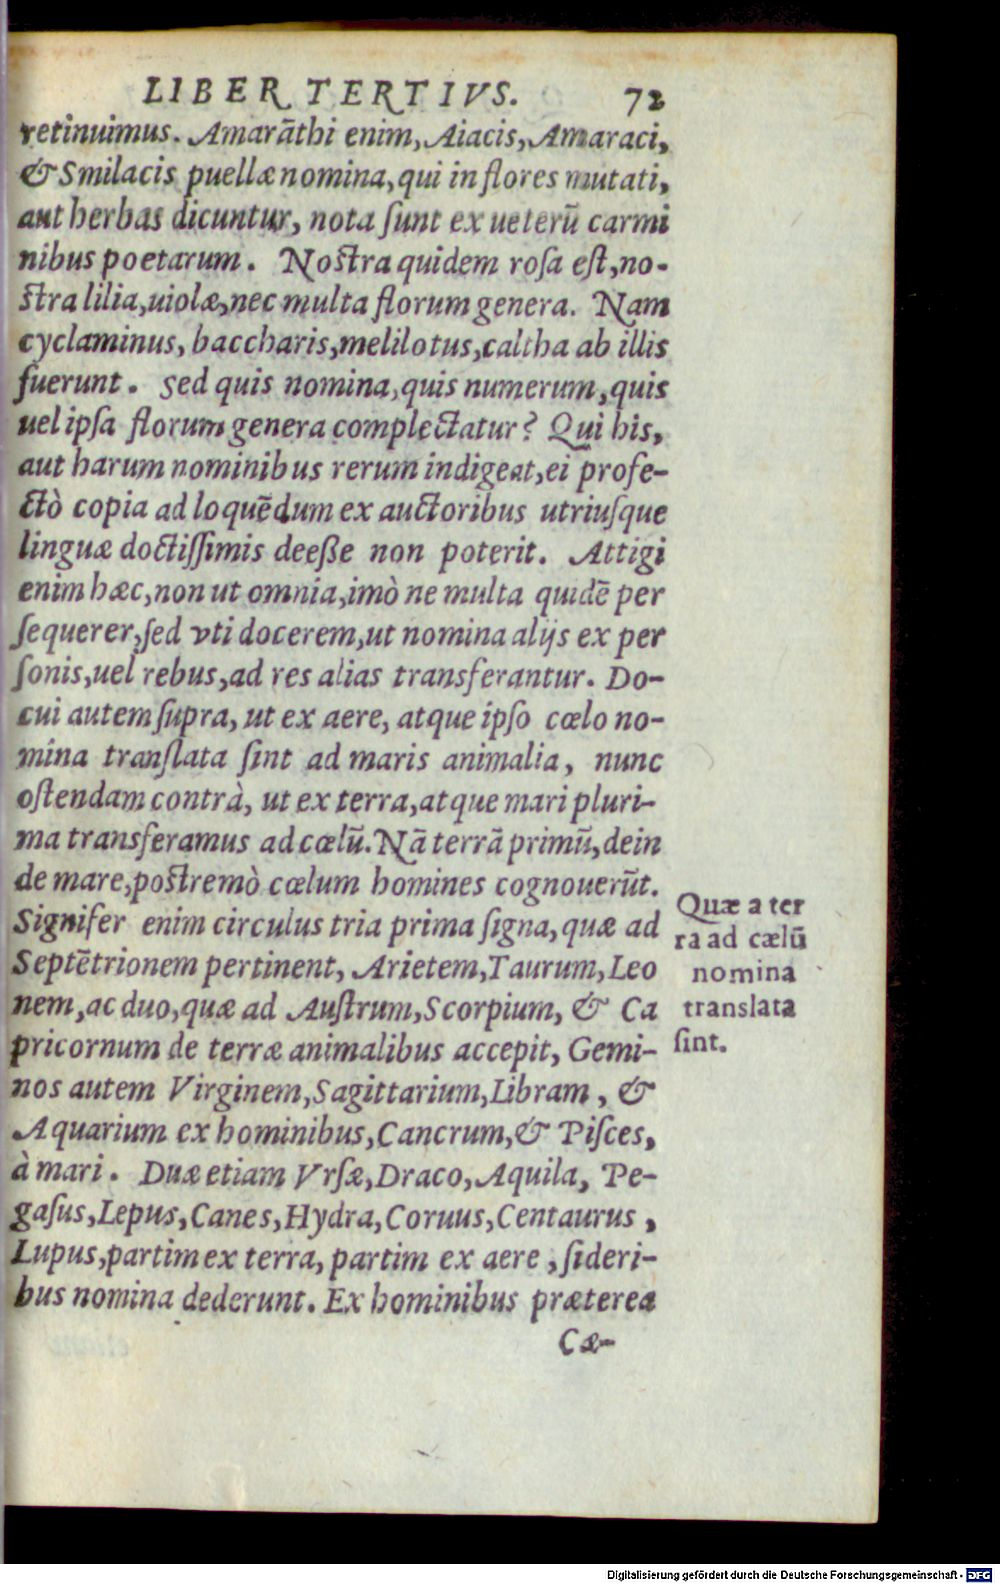 LIBER TERTIVS. 72
retinuimus. Amarāthi enim, Aiacis, Amaraci,
& Smilacis puellæ nomina, qui in flores mutati,
aut herbas dicuntur, nota ſunt ex ueterū carmi
nibus poetarum. Noſtra quidem roſa eſt, no-
ſtra lilia, uiolæ, nec multa florum genera. Nam
cyclaminus, baccharis, melilotus, caltha ab illis
fuerunt. Sed quis nomina, quis numerum, quis
uel ipſa florum genera complectatur? Qui his,
aut harum nominibus rerum indigeat, ei profe-
ctò copia ad loquēdum ex auctoribus utriuſque
linguæ doctiſſimis deeße non poterit. Attigi
enim hæc, non ut omnia, imò ne multa quidē per
ſequerer, ſed vti docerem, ut nomina alijs ex per
ſonis, uel rebus, ad res alias transferantur. Do-
cui autem ſupra, ut ex aere, atque ipſo cœlo no-
mina tranſlata ſint ad maris animalia, nunc
oſtendam contrà, ut ex terra, atque mari pluri-
ma transferamus ad cœlū. Nā terrā primū, dein
de mare, poſtremò cœlum homines cognouerūt.
Signifer enim circulus tria prima ſigna, quæ ad
Septētrionem pertinent, Arietem, Taurum, Leo
nem, ac duo, quæ ad Auſtrum, Scorpium, & Ca
pricornum de terræ animalibus accepit, Gemi-
nos autem Virginem, Sagittarium, Libram, &
Aquarium ex hominibus, Cancrum, & Piſces,
à mari. Duæ etiam Vrſæ, Draco, Aquila, Pe-
gaſus, Lepus, Canes, Hydra, Coruus, Centaurus,
Lupus, partim ex terra, partim ex aere, ſideri-
bus nomina dederunt. Ex hominibus præterea
Cæ-
Quæ a ter
ra ad cælū
nomina
translata
ſint.
Digitalisierung gefördert durch die Deutsche Forschungsgemeinschaft - DFG